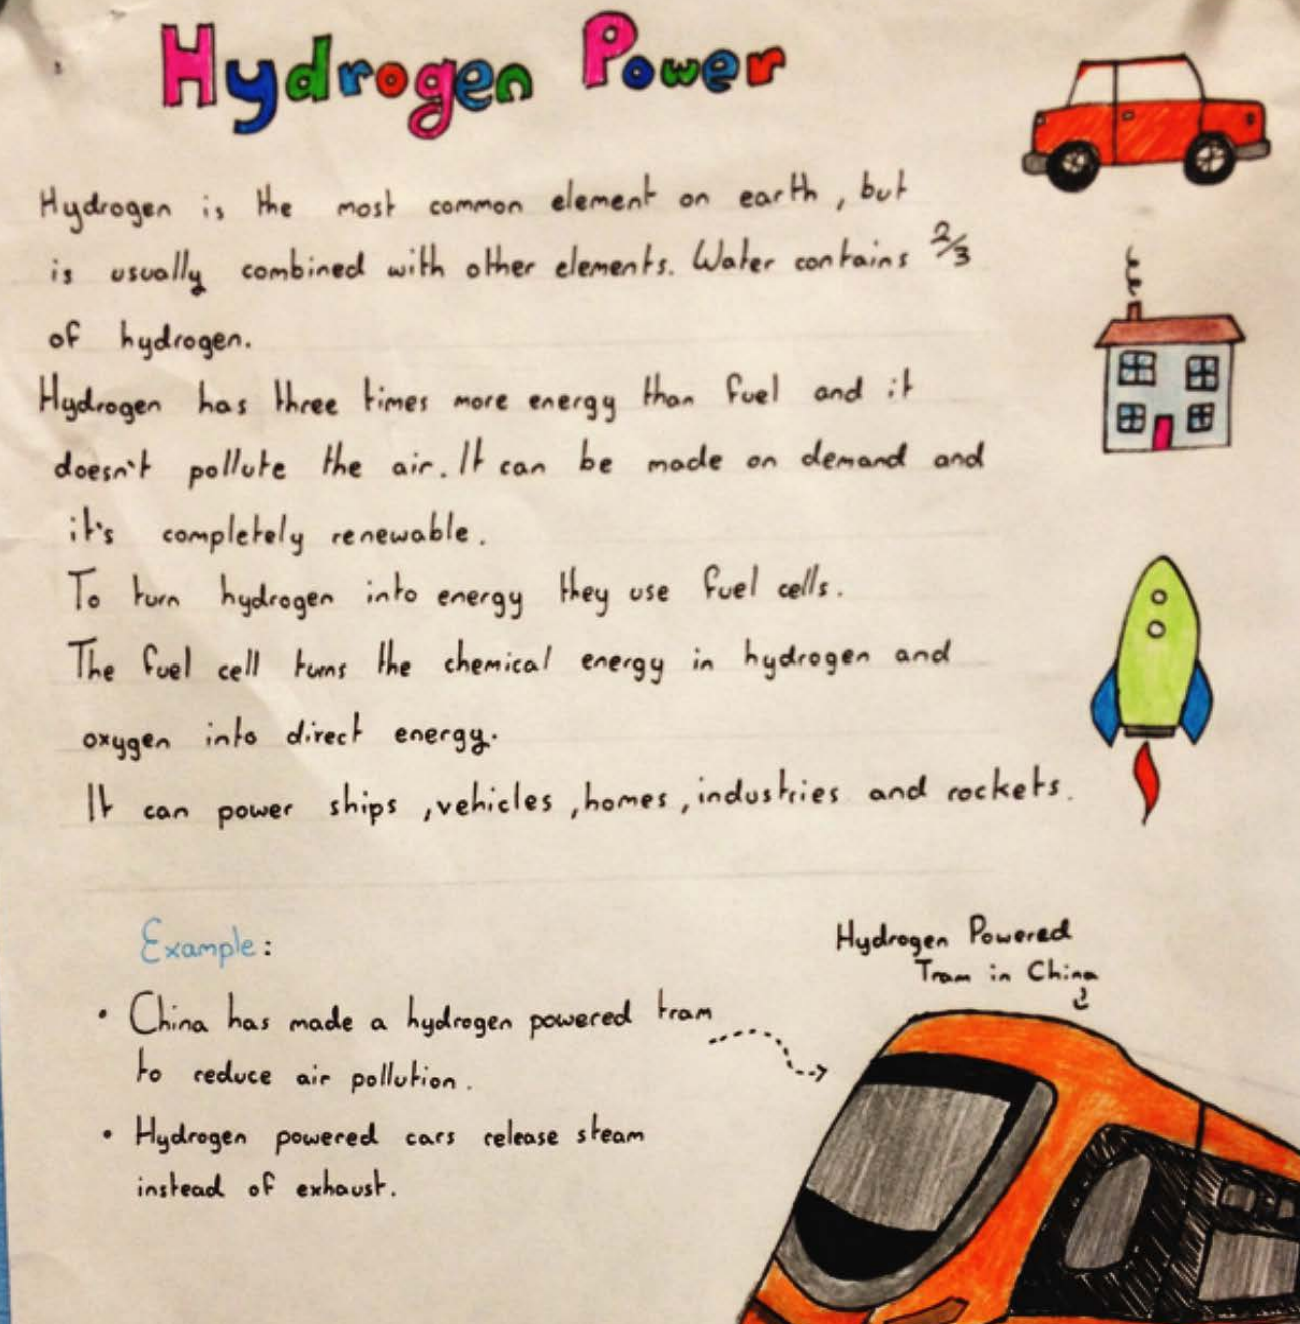 Hydrogen Power
Hydrogen is the most common element on earth, but
is usually combined with other elements. Water contains 2/3
of hydrogen.
Hydrogen has three times more energy than fuel and it
doesn't pollute the air. It can be made on demand and
it's completely renewable.
To turn hydrogen into energy they use fuel cells.
The fuel cell turns the chemical energy in hydrogen and
oxygen into direct energy.
It can power ships, vehicles, homes, industries and rockets.
Example:
• China has made a hydrogen powered tram
to reduce air pollution.
• Hydrogen powered cars release steam
instead of exhaust.
Hydrogen Powered
Tram in China